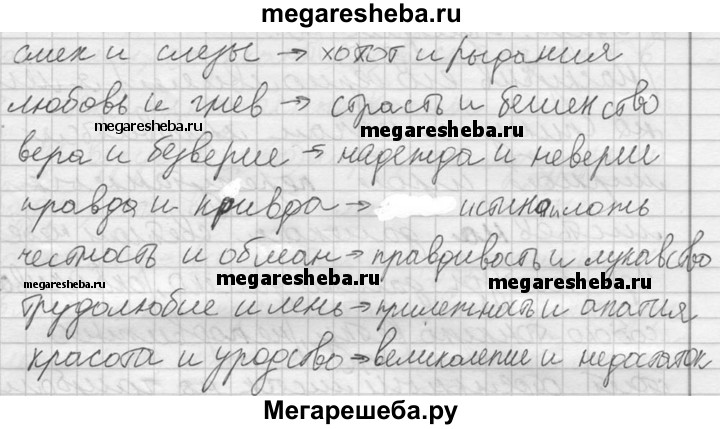 megaresheba.ru
смех и слезы → хохот и рыдания
любовь и гнев → страсть и бешенство
megaresheba.ru
megaresheba.ru
вера и безверие → надежда и неверие
правда и кривда → истина и ложь
честность и обман → правдивость и лукавство
megaresheba.ru
megaresheba.ru
megaresheba.ru
трудолюбие и лень → прилежность и апатия
красота и уродство → великолепие и недостаток
Мегарешеба.ру